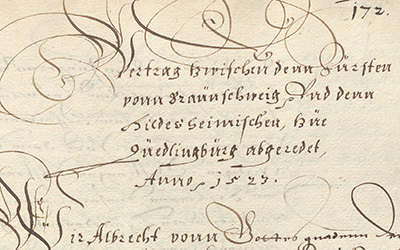 172.
Vertrag zwischen denn Fürsten
vonn Braünschweig, Vnd denn
Hildesheimischen, züe
Qüedlingbürg abgeredet,
Anno, 1523.
Wir Albrecht vonn Gottes gnadenn